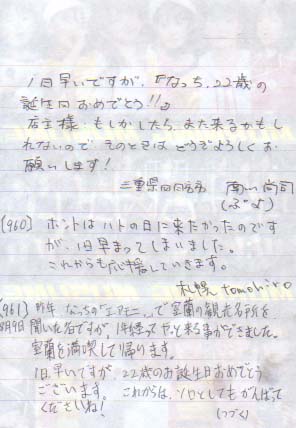 1日早いですが、『なっち、22歳の
誕生日おめでとう!!』
店主様、もしかしたら、また来るかもし
れないので そのときは どうぞよろしくお
願いします!
三重県四日市市 南川尚司
(ぶよ)
[960] ホントはハトの日に来たかったのです
が、1日早まってしまいました。
これからも応援していきます。
札幌 tomohiro
[961] 昨年 なっちの「エアモニ。」で室蘭の観光名所を
8月9日 聞いた者ですが、1年経って やっと来る事ができました。
室蘭を満喫して帰ります。
1日早いですが 22歳のお誕生日おめでとう
ございます。 これからは、ソロとしてもがんばって
くださいね!
(つづく)